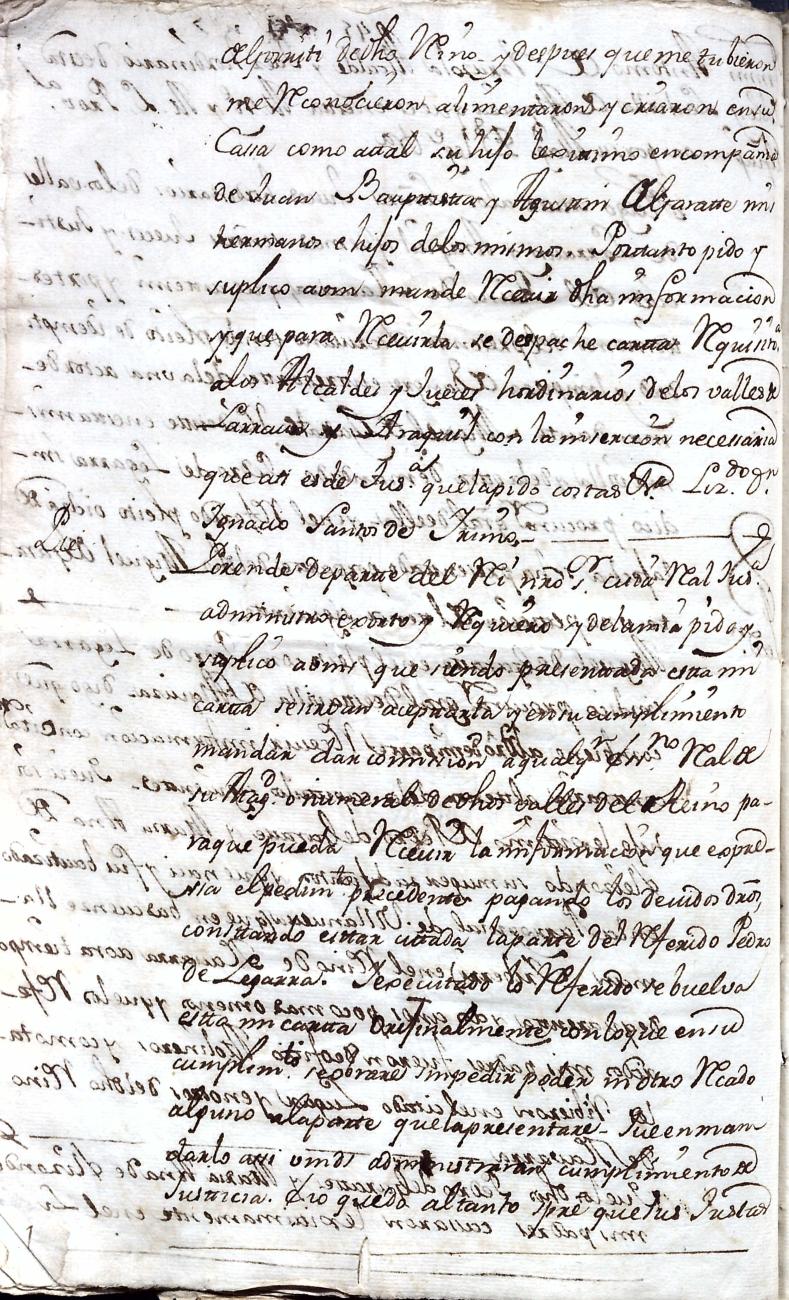 dha Niño y despues que me tubieron
me Rconocieron alimentaron y criaron en su
Cassa como atal su hijo lexitimo en compania
de Juan Bauptista y Agustin Algaratte mis
hermanos e hijos de los mismos. Portanto pido y
suplico avm mande Rceuir dha informacion
y que para Rceuirla se despache cartta Rquisita
alos Alcaldes y Jueces hordinarios delos valles de
Larraun y Araquil con la insercion necessaria
que asi es de Jusa. que la pido costas Lizdo. dn.
Ignacio Santos de
Porende de parte del Ri nro Sr. cuia Ral Jusa.
administro exorto y Rquiero y de la mia pido y
suplico avms que siendo presentada esta mi
cartta se sirban aceptarla y en su cumplimiento
mandar dar comision a qualqr. essno. Ral de
su Magd. o numeral de dhos valles del Reino pa-
raque pueda Rceuir la informacion que expre-
sa el pedimto. precedente pagando los deuidos dros,
constando esttar cittada la parte del Rferido Pedro
de Legarra. Y executtado lo Rferido se buelva
esta mi cartta orijinalmente con lo que en su
cumplimto. se obrare sin pedir poder ni otro Rcado
alguno ala parte que la presentare. Que en man
darlo assi vmds administraran cumplimiento de
Justicia. E io quedo al tanto spre que sus Justas